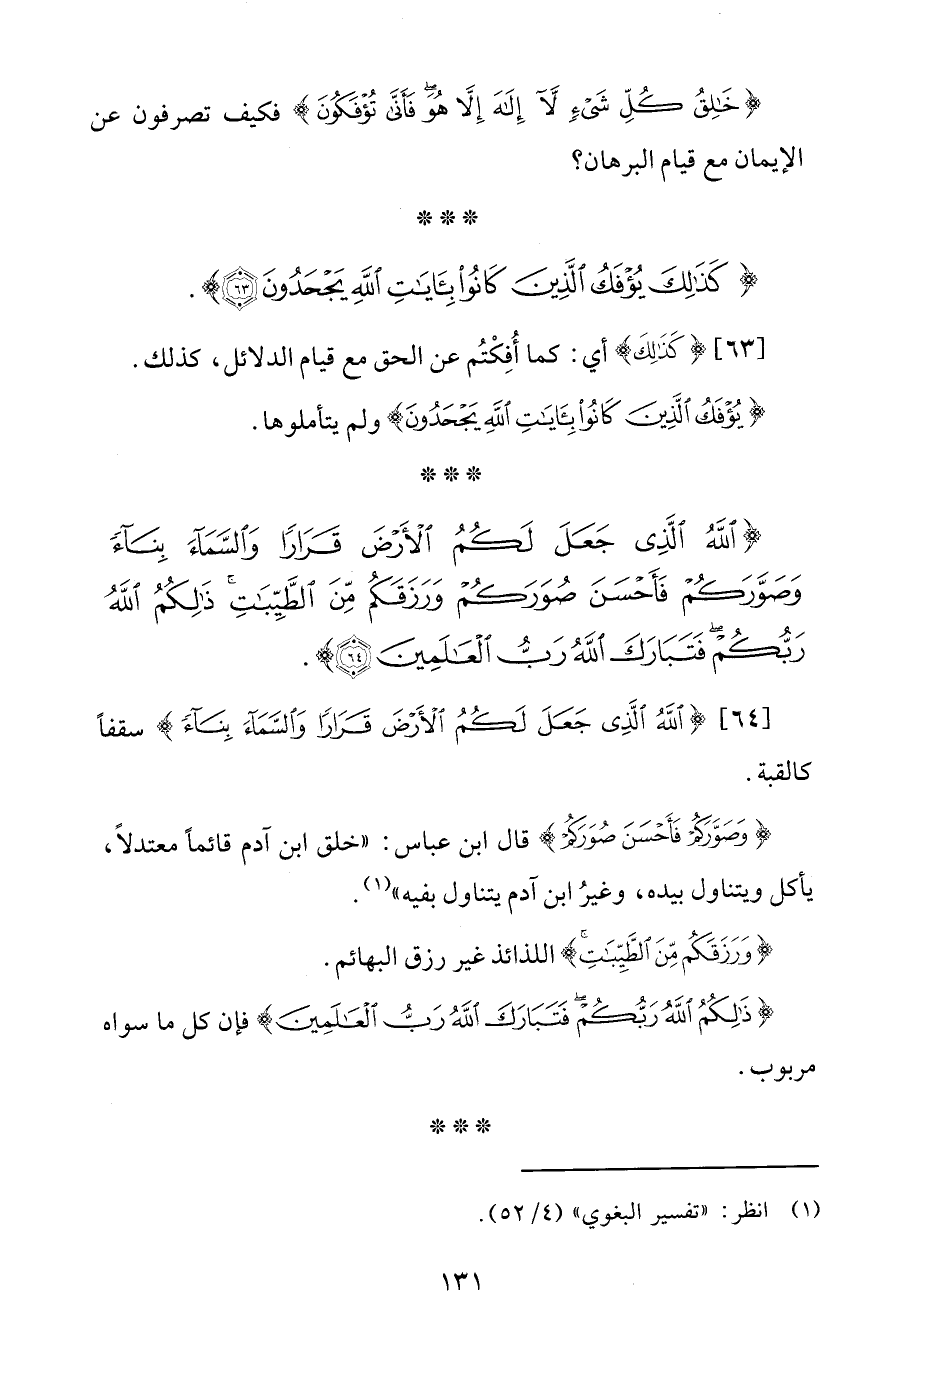 ﴿خَٰلِقُ كُلِّ شَىْءٍ لَّآ إِلَٰهَ إِلَّا هُوَ ۖ فَأَنَّىٰ تُؤْفَكُونَ﴾ فكيف تصرفون عن
الإيمان مع قيام البرهان؟
***
﴿كَذَٰلِكَ يُؤْفَكُ ٱلَّذِينَ كَانُوا۟ بِـَٔايَٰتِ ٱللَّهِ يَجْحَدُونَ ٦٣﴾ .
[٦٣] ﴿كَذَٰلِكَ﴾ أي: كما أُفِكْتُم عن الحق مع قيام الدلائل، كذلك.
﴿يُؤْفَكُ ٱلَّذِينَ كَانُوا۟ بِـَٔايَٰتِ ٱللَّهِ يَجْحَدُونَ﴾ ولم يتأملوها.
***
﴿ٱللَّهُ ٱلَّذِى جَعَلَ لَكُمُ ٱلْأَرْضَ قَرَارًا وَٱلسَّمَآءَ بِنَآءً
وَصَوَّرَكُمْ فَأَحْسَنَ صُوَرَكُمْ وَرَزَقَكُم مِّنَ ٱلطَّيِّبَٰتِ ۚ ذَٰلِكُمُ ٱللَّهُ
رَبُّكُمْ ۖ فَتَبَارَكَ ٱللَّهُ رَبُّ ٱلْعَٰلَمِينَ ٦٤﴾ .
[٦٤] ﴿ٱللَّهُ ٱلَّذِى جَعَلَ لَكُمُ ٱلْأَرْضَ قَرَارًا وَٱلسَّمَآءَ بِنَآءً﴾ سقفاً
كالقبة .
﴿وَصَوَّرَكُمْ فَأَحْسَنَ صُوَرَكُمْ﴾ قال ابن عباس: «خلق ابن آدم قائماً معتدلاً،
يأكل ويتناول بيده، وغيرُ ابن آدم يتناول بفيه»(١).
﴿وَرَزَقَكُم مِّنَ ٱلطَّيِّبَٰتِ ۚ﴾ اللذائذ غير رزق البهائم.
﴿ذَٰلِكُمُ ٱللَّهُ رَبُّكُمْ ۖ فَتَبَارَكَ ٱللَّهُ رَبُّ ٱلْعَٰلَمِينَ﴾ فإن كل ما سواه
مربوب.
***
(١) انظر: «تفسير البغوي» (٤/ ٥٢).
١٣١